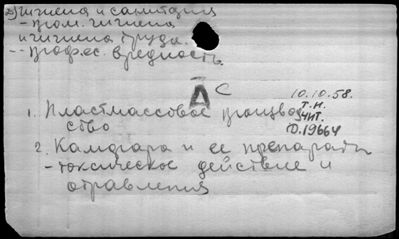 2) Гигиена и санитария
- пром. гигиена
и гигиена труда.
- професс. вредность
А С
10.10.58.
Т.И.
1. Пластмассовое производ-
чит.
ство
О.19664
2. Камфара и ее препараты
- токсическое действие и
отравления